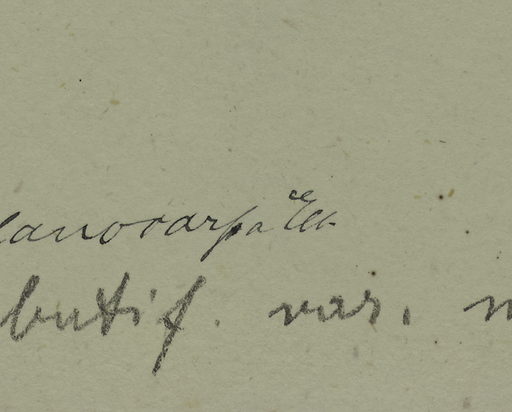 lanocarpa Ell.
butif. var. m